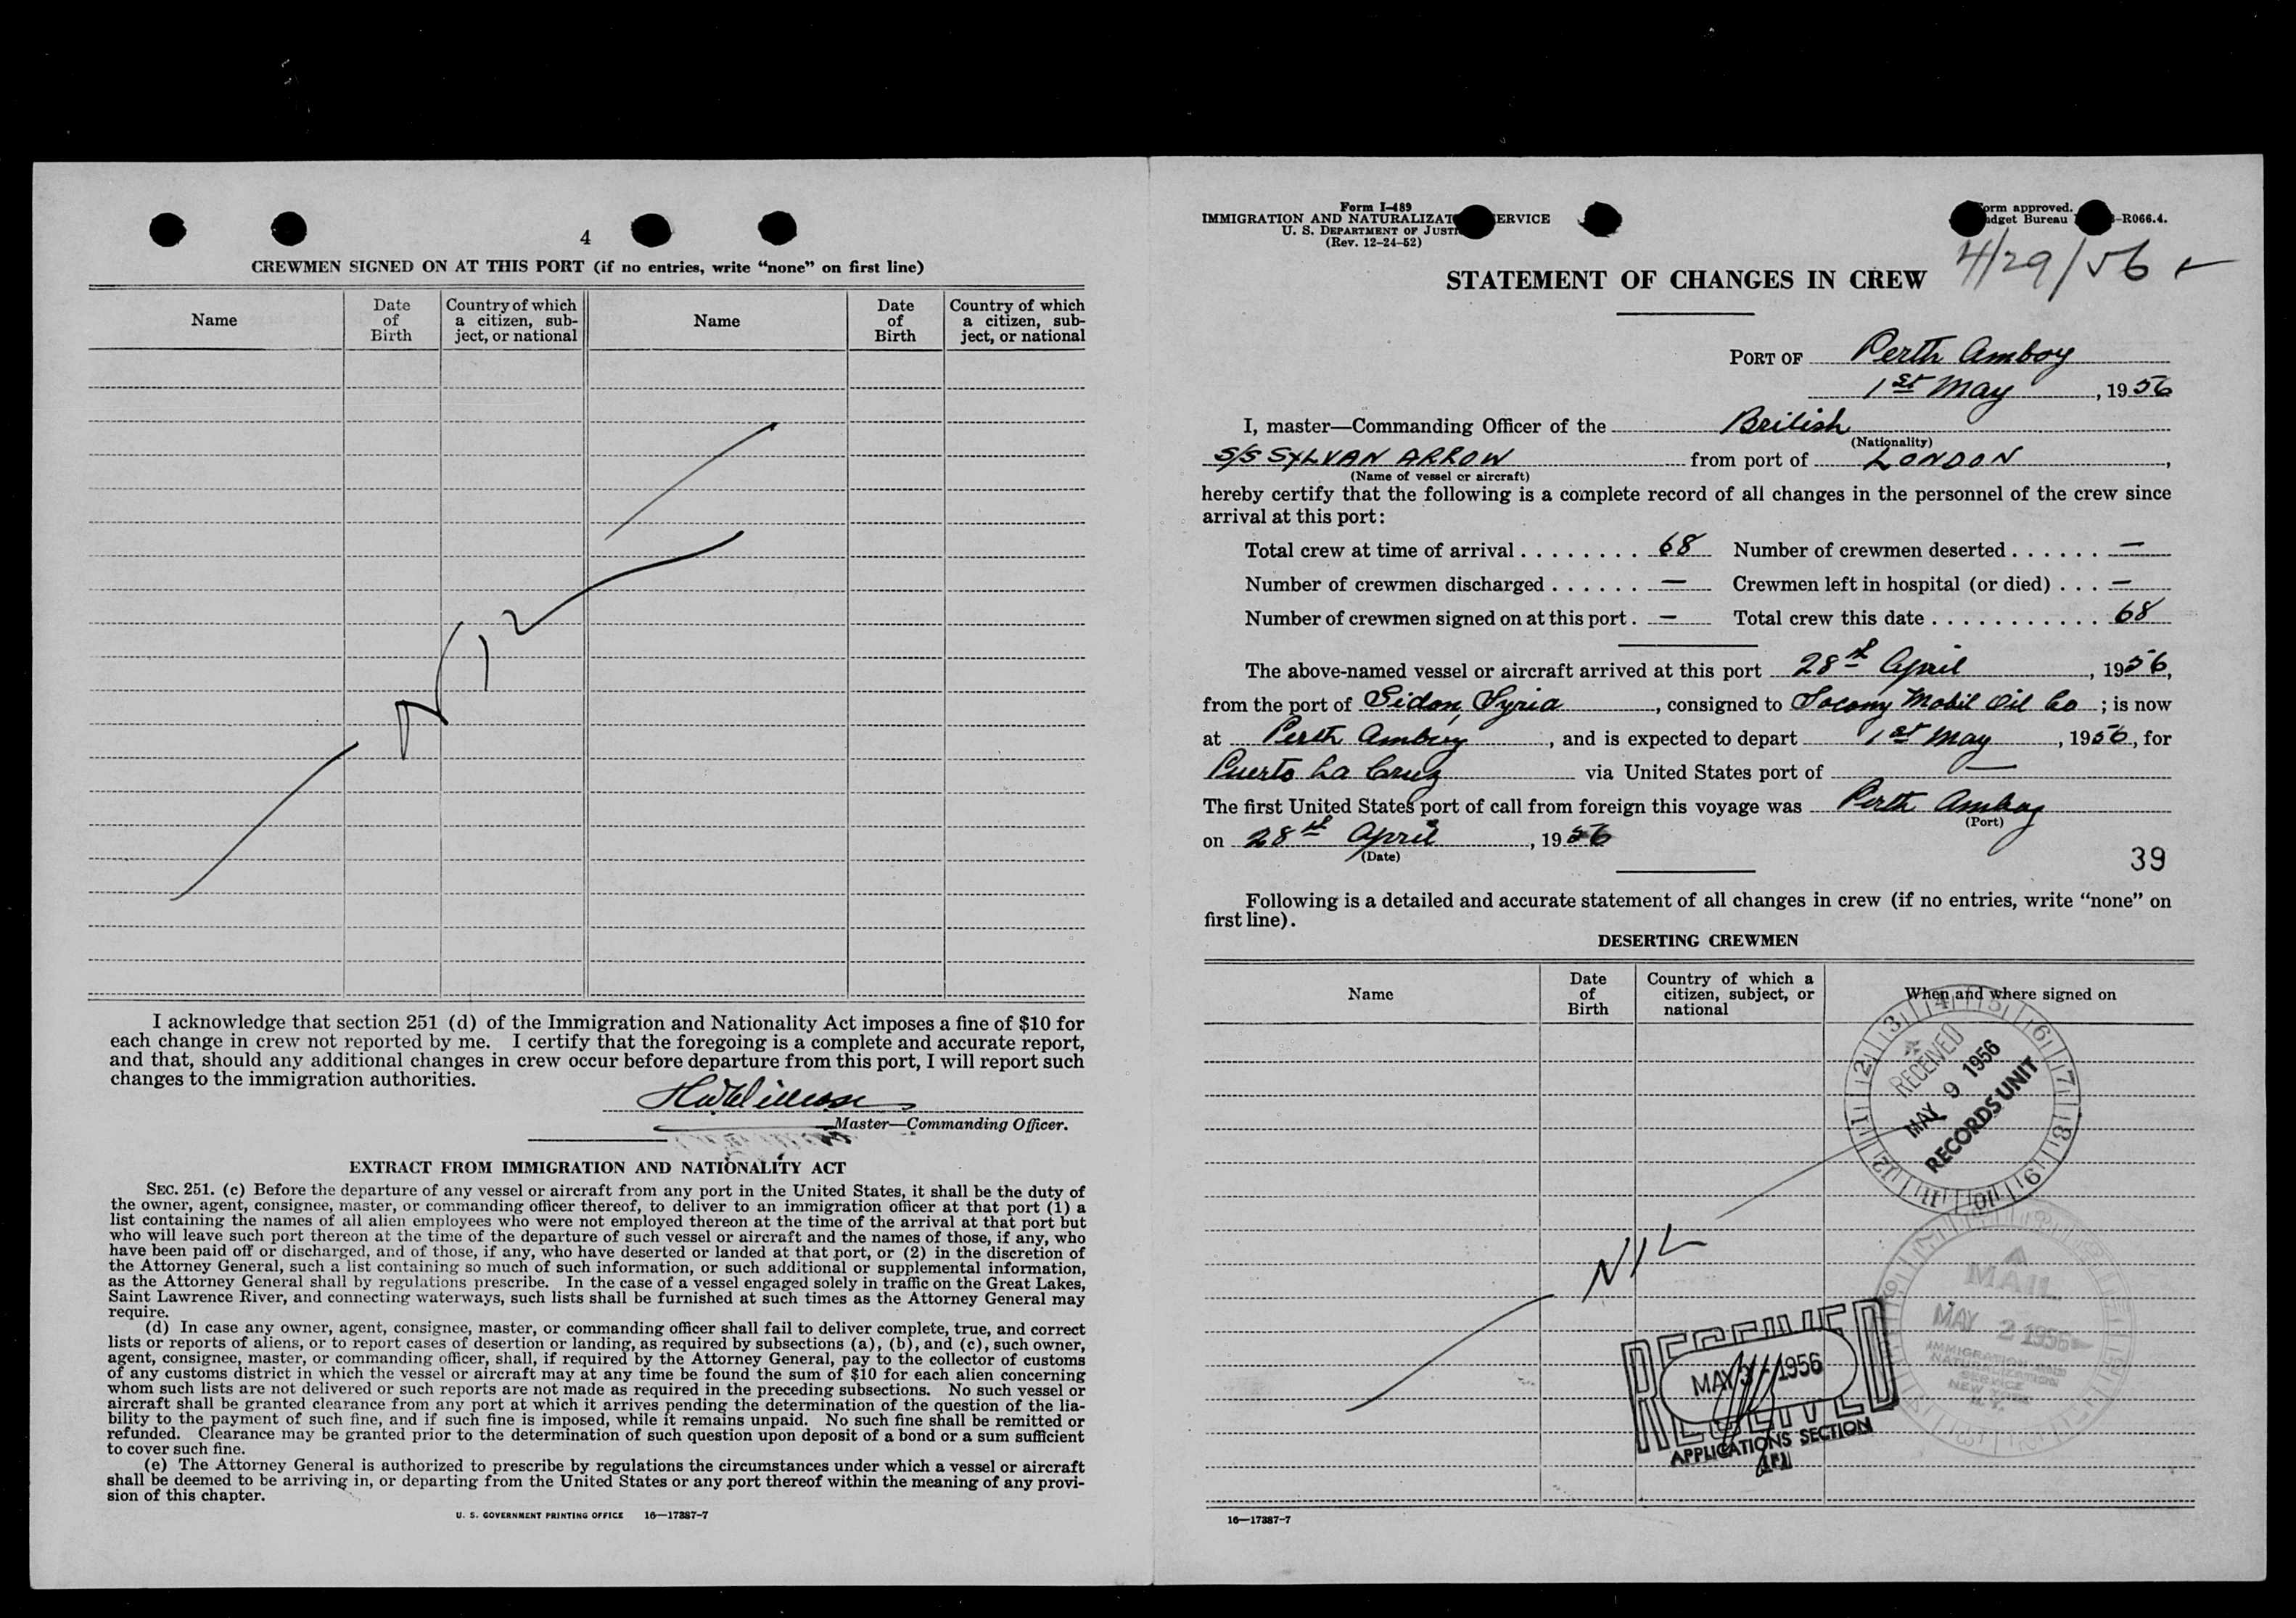 4
CREWMEN SIGNED ON AT THIS PORT (if no entries, write "none" on first line)
Name
Date of Birth
Country of which a citizen, sub-ject, or national
Name
Date of Birth
Country of which a citizen, sub-ject, or national
NIL
I acknowledge that section 251 (d) of the Immigration and Nationality Act imposes a fine of $10 for
each change in crew not reported by me. I certify that the foregoing is a complete and accurate report,
and that, should any additional changes in crew occur before departure from this port, I will report such
changes to the immigration authorities.
Master—Commanding Officer.
EXTRACT FROM IMMIGRATION AND NATIONALITY ACT
SEC. 251. (c) Before the departure of any vessel or aircraft from any port in the United States, it shall be the duty of
the owner, agent, consignee, master, or commanding officer thereof, to deliver to an immigration officer at that port (1) a
list containing the names of all alien employees who were not employed thereon at the time of the arrival at that port but
who will leave such port thereon at the time of the departure of such vessel or aircraft and the names of those, if any, who
have been paid off or discharged, and of those, if any, who have deserted or landed at that port, or (2) in the discretion of
the Attorney General, such a list containing so much of such information, or such additional or supplemental information,
as the Attorney General shall by regulations prescribe. In the case of a vessel engaged solely in traffic on the Great Lakes,
Saint Lawrence River, and connecting waterways, such lists shall be furnished at such times as the Attorney General may
require.
(d) In case any owner, agent, consignee, master, or commanding officer shall fail to deliver complete, true, and correct
lists or reports of aliens, or to report cases of desertion or landing, as required by subsections (a), (b), and (c), such owner,
agent, consignee, master, or commanding officer, shall, if required by the Attorney General, pay to the collector of customs
of any customs district in which the vessel or aircraft may at any time be found the sum of $10 for each alien concerning
whom such lists are not delivered or such reports are not made as required in the preceding subsections. No such vessel or
aircraft shall be granted clearance from any port at which it arrives pending the determination of the question of the lia-
bility to the payment of such fine, and if such fine is imposed, while it remains unpaid. No such fine shall be remitted or
refunded. Clearance may be granted prior to the determination of such question upon deposit of a bond or a sum sufficient
to cover such fine.
(e) The Attorney General is authorized to prescribe by regulations the circumstances under which a vessel or aircraft
shall be deemed to be arriving in, or departing from the United States or any port thereof within the meaning of any provi-
sion of this chapter.
U. S. GOVERNMENT PRINTING OFFICE 16—17387-7
Form I-489
IMMIGRATION AND NATURALIZAT ERVICE
U. S. DEPARTMENT OF JUSTI
(Rev. 12-24-52)
orm approved.
dget Bureau -R066.4.
4/29/56
STATEMENT OF CHANGES IN CREW
PORT OF Perth Amboy
1st May, 1956
I, master—Commanding Officer of the British
(Nationality)
S/S SYLVAN ARROW from port of LONDON,
(Name of vessel or aircraft)
hereby certify that the following is a complete record of all changes in the personnel of the crew since
arrival at this port:
Total crew at time of arrival . . . . . . . . 68 Number of crewmen deserted . . . . . . —
Number of crewmen discharged . . . . . . — Crewmen left in hospital (or died) . . . —
Number of crewmen signed on at this port . — Total crew this date . . . . . . . . . . . 68
The above-named vessel or aircraft arrived at this port 28th April, 1956,
from the port of Sidon, Syria, consigned to Socony Mobil Oil Co; is now
at Perth Amboy, and is expected to depart 1st May, 1956, for
Puerto La Cruz via United States port of —
The first United States port of call from foreign this voyage was Perth Amboy
(Port)
on 28th April, 1956
(Date)
39
Following is a detailed and accurate statement of all changes in crew (if no entries, write "none" on
first line).
DESERTING CREWMEN
Name
Date of Birth
Country of which a citizen, subject, or national
When and where signed on
RECEIVED
MAY 9 1956
RECORDS UNIT
1 2 3 4 5 6 7 8 9 10 11 12
NIL
A
MAIL
MAY 2 1956
IMMIGRATION AND
NATURALIZATION
SERVICE
NEW YORK
N.Y.
RECEIVED
MAY 3 - 1956
APPLICATIONS SECTION
16—17387-7